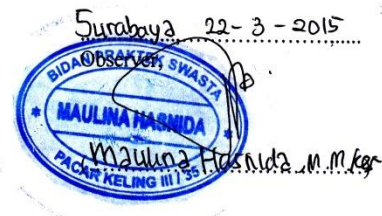 Surabaya 22-3-2015
Observer,
BIDAN PRAKTEK SWASTA
MAULINA HASNIDA
PACAR KELING III / 35
Maulina Hasnida, M.M.Kes